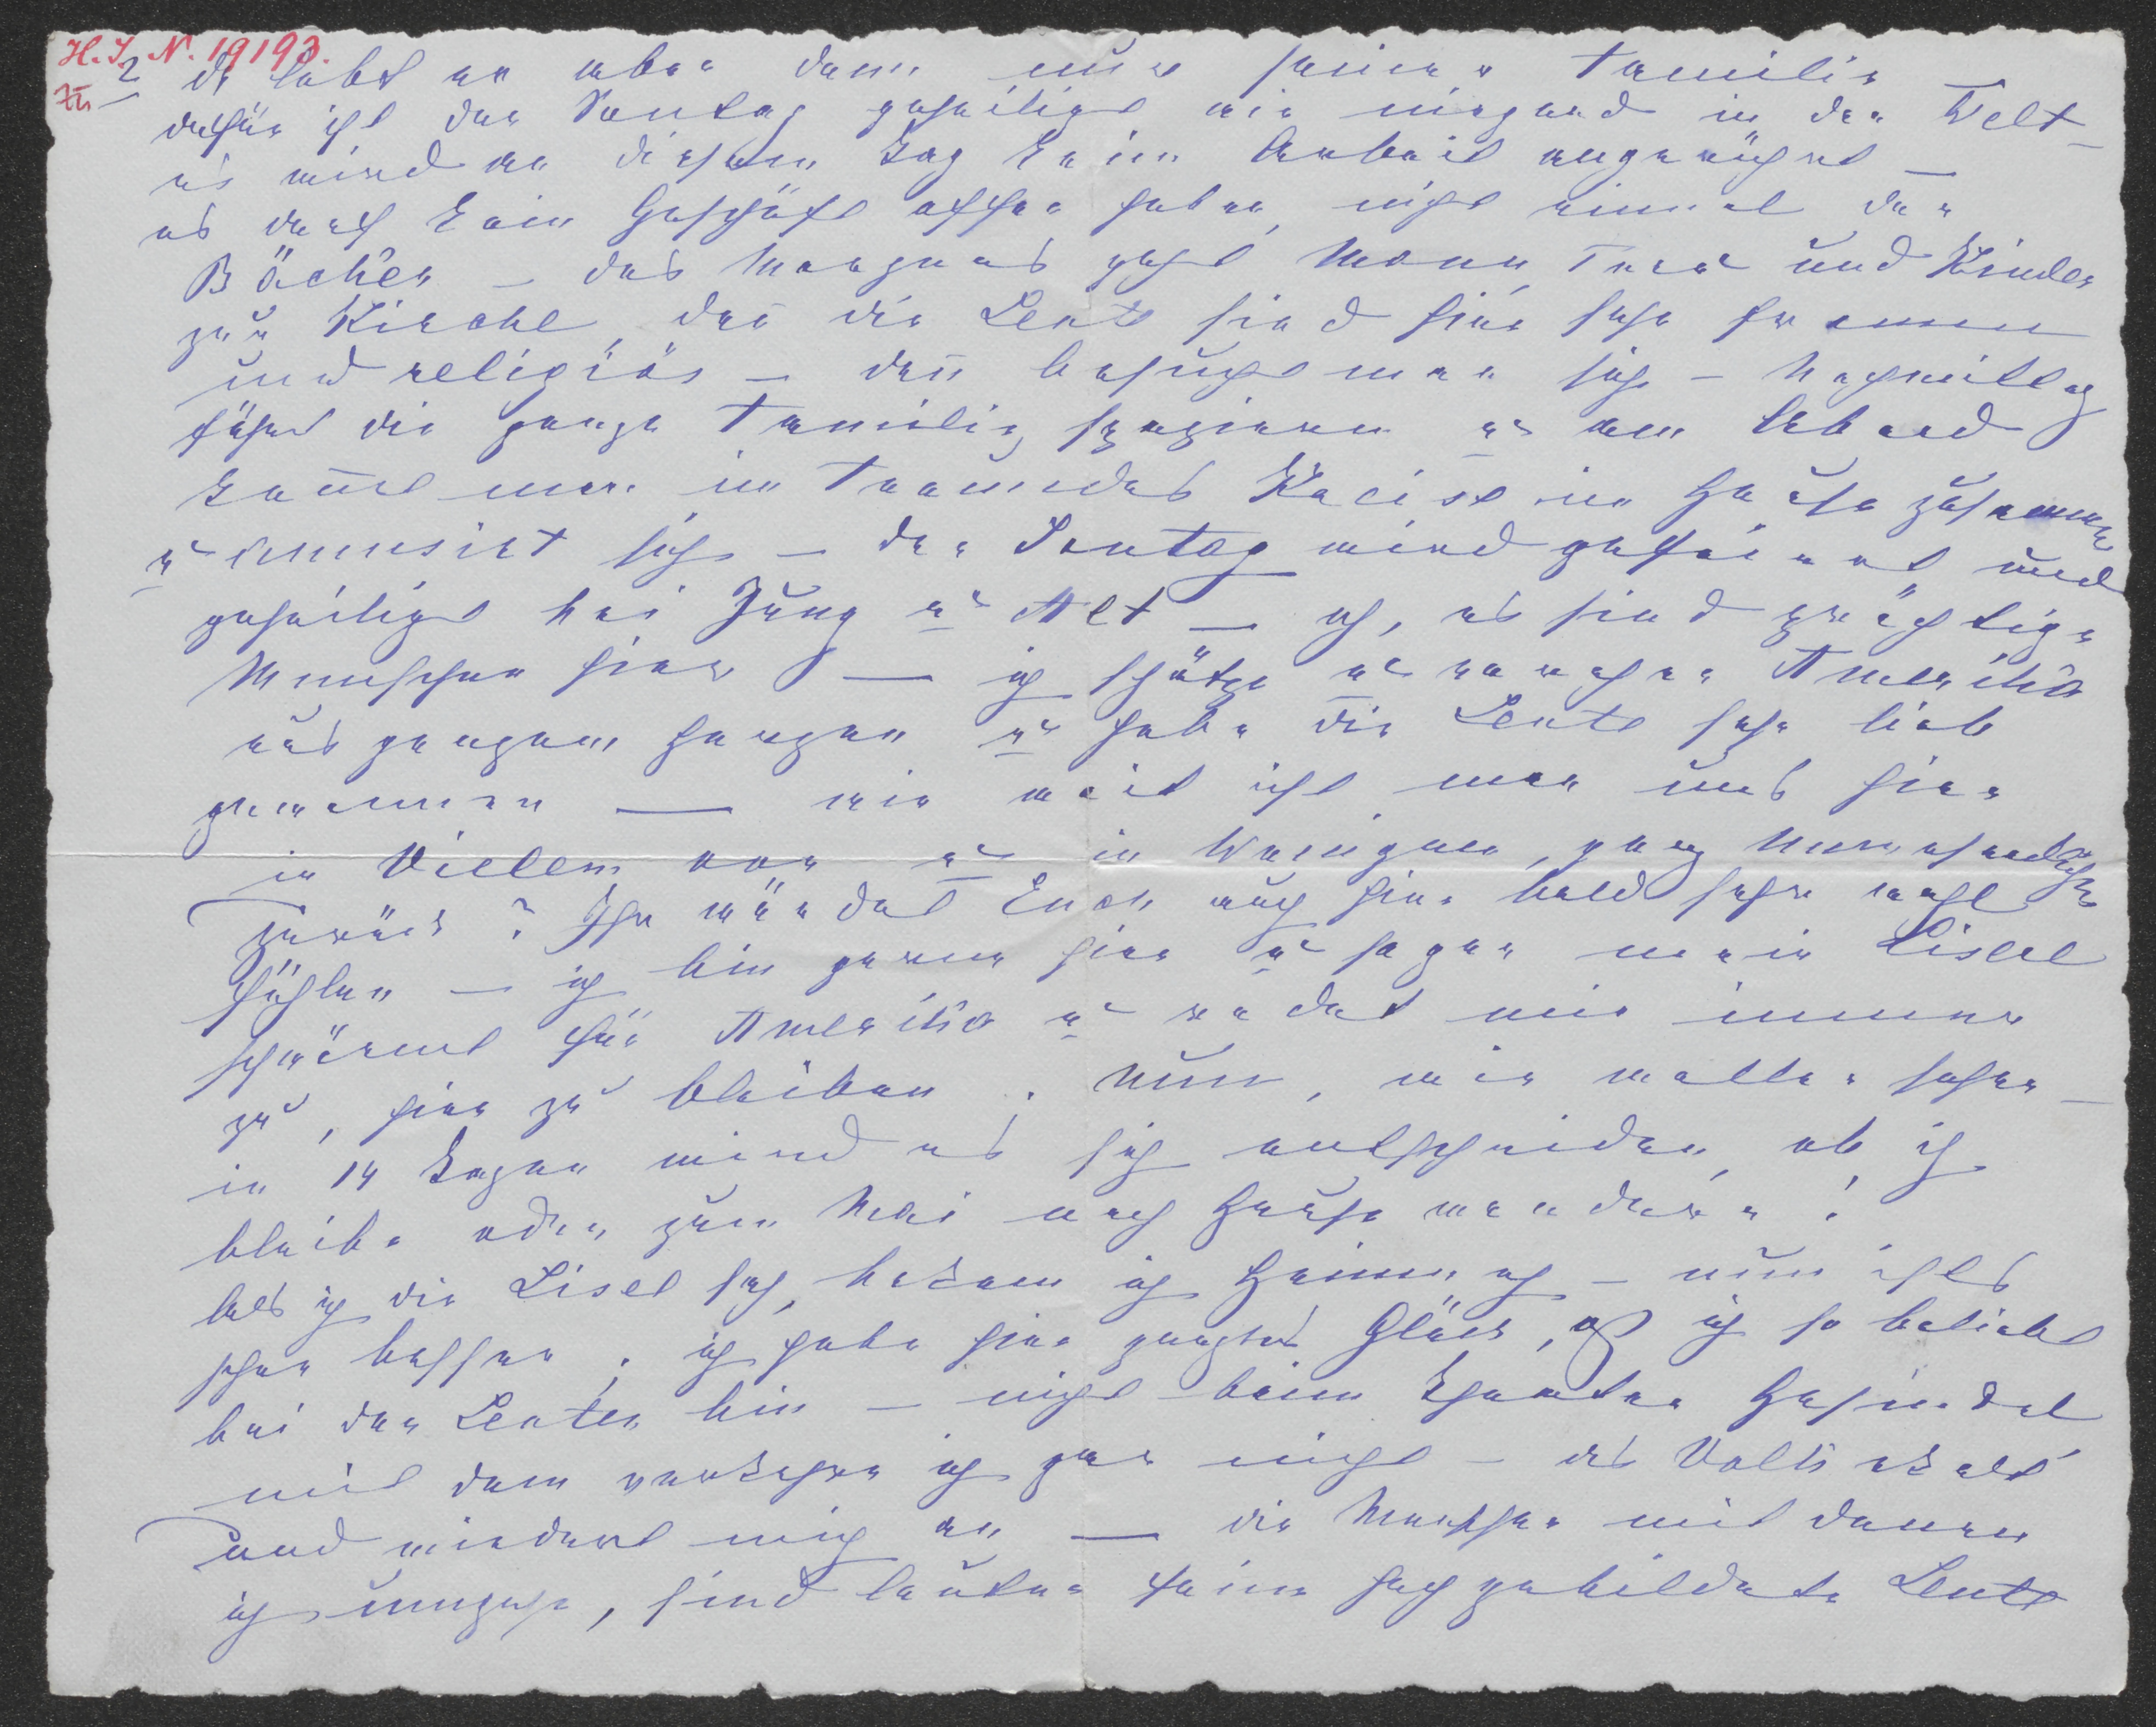 H. I. N. 19193.
Zu
2 da lebt er aber dann nur seiner Familie
dafür ist der Sontag geheiligt wie nirgend in der Welt –
es wird an diesem Tag kein Arbeit angerührt –
es darf kein Geschäft offen haben, nicht einmal der
Bäcker – des Morgens geht Mann, Frau und Kinder
zur Kirche, den̄ die Leute sind hier sehr fromm
und religiös – dan̄ besucht man sich – Nachmittag
fährt die ganze Familie spazieren u am Abend
kom̄t man im Freundes Kreise im Hause zusammen
u amusirt sich – der Sontag wird gefeiert und
geheiligt bei Jung u Alt – ach, es sind prächtige
Menschen hier – ich schätze u verehre Amerika
aus ganzem Herzen u habe die Leute sehr lieb
gewonnen — wie weit ist man uns hier
in Vielem vor u in Wenigem, ganz Unwesentlichen
zurück? Ihr würdet Euch auch hier bald sehr wohl
fühlen – ich bin gerne hier u sogar mein Lisel
schwärmt für Amerika u redet mir immer
zu, hier zu bleiben. Nun, wir wollen sehen –
in 14 Tagen wird es sich entscheiden, ob ich
bleibe oder zum Mai nach Hause wandere!
Als ich die Lisel sah, bekam ich Heimweh – nun ists
schon besser; ich habe hier großes Glück, daß ich so beliebt
bei den Leuten bin – nicht beim Theater Gesindel
mit dem verkehre ich gar nicht – das Volk ekelt
und widert mich an — die Menschen mit denen
ich umgehe, sind lauter feine hochgebildete Leute